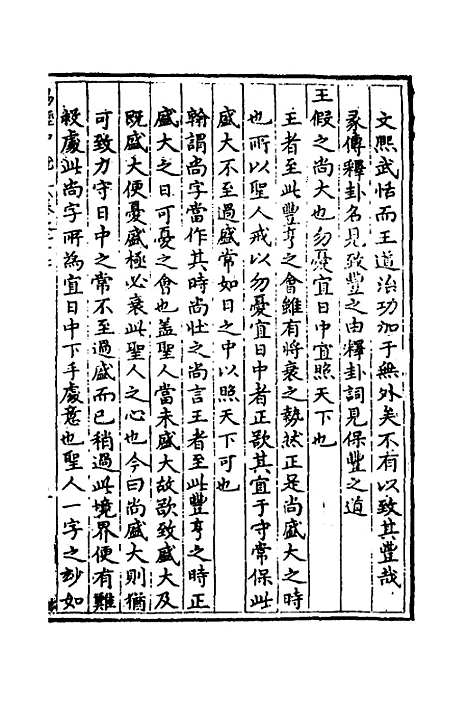 文熙武恬而王道治功加于無外矣不有以致其豐哉
彖傳釋卦名見致豐之由釋卦詞見保豐之道
王假之尚大也勿憂宜日中宜照天下也
王者至此豐亨之會雖有將衰之勢然正是尚盛大之時
也所以聖人戒以勿憂宜日中者正欲其宜于守常保此
盛大不至過盛常如日之中以照天下可也
翰謂尚字當作其時尚壯之尚言王者至此豐亨之時正
盛大之日可憂之會也盖聖人當未盛大故欲致盛大及
既盛大便憂盛極必衰此聖人之心也今曰尚盛大則猶
可致力守日中之常不至過盛而已稍過此境界便有難
殺處此尚字所為宜日中下手處意也聖人一字之玅如